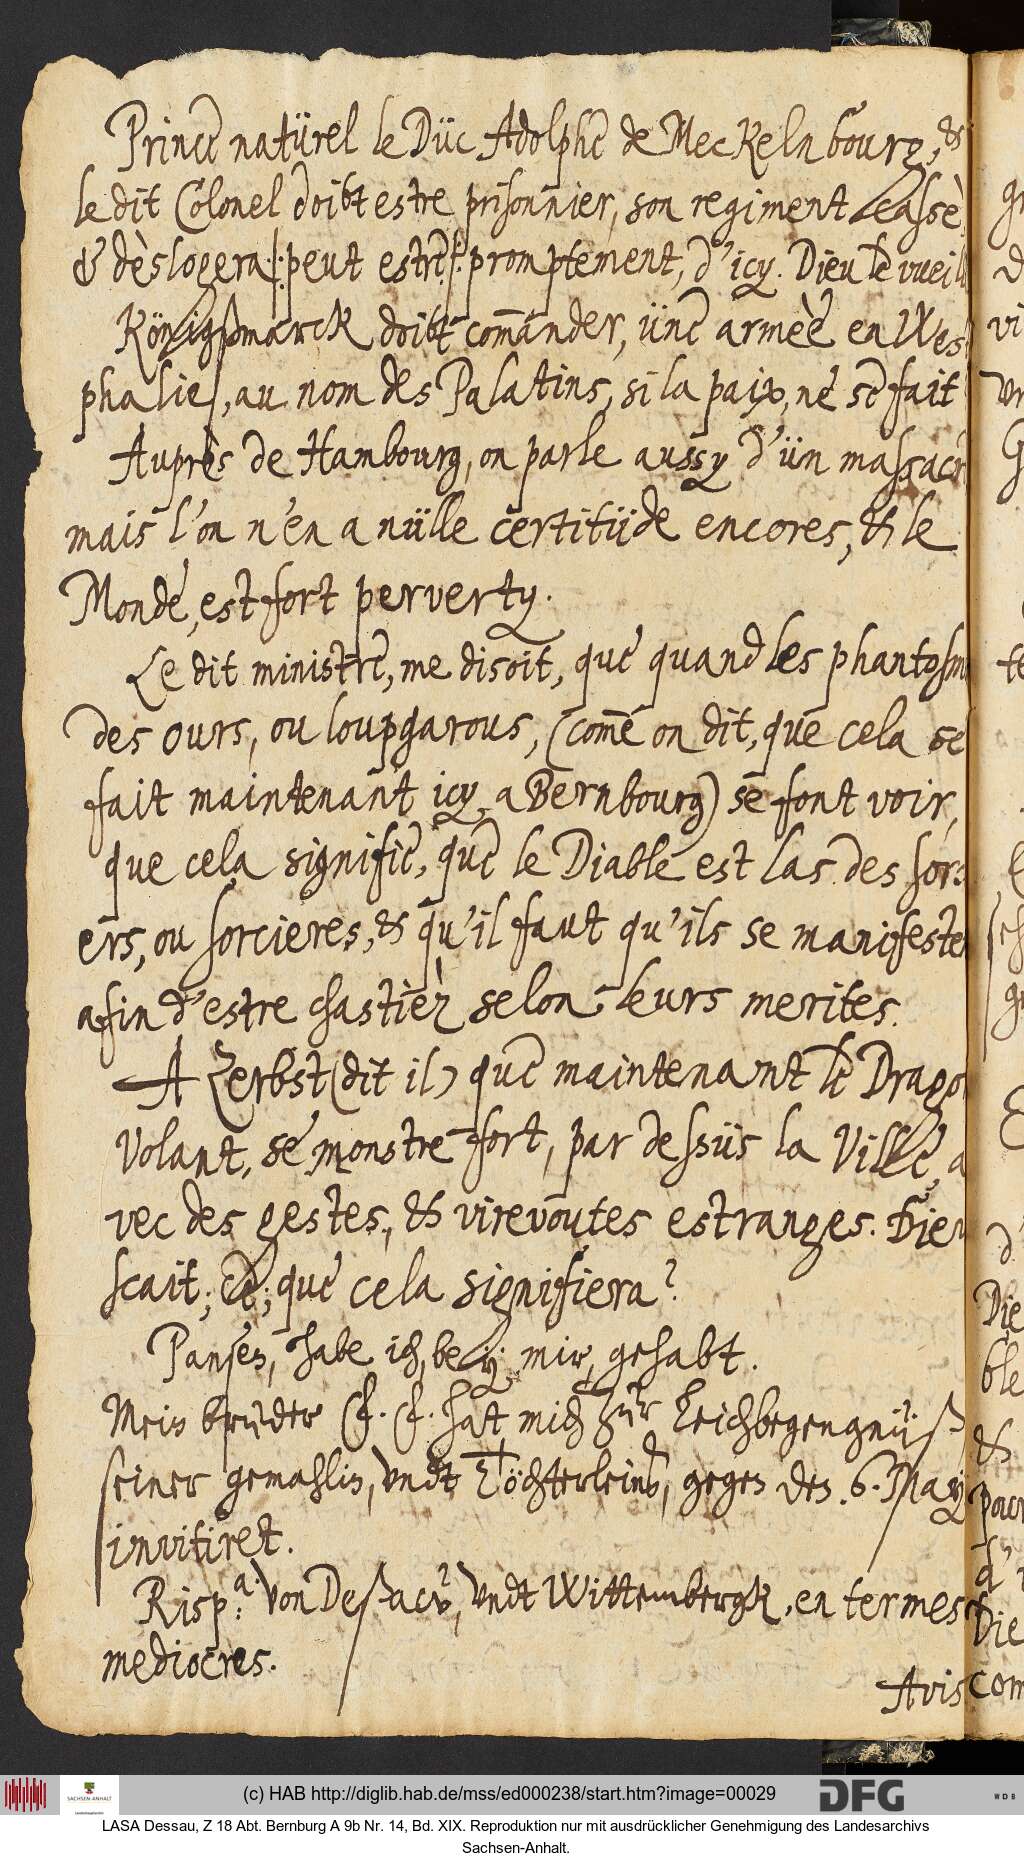 Prince natürel le Düc Adolphe de Meckelnbourg, &
le dit Colonel doibt estre prisonnier, son regiment cassè
& dèslogera /:peut estre:/ promptement, d'icy. Dieu le vueil
Königßmarck doibt com̄ander, üne armèe en West
phalie, au nom des Palatins, si la paix, ne se fait
Auprès de Hambourg, on parle aussy d'ün massacr
mais l'on n'en a nülle certitüde encores, & le
Monde, est fort perverty.
Le dit ministre, me disoit, que quand les phantosm
des ours, ou loupgarous, (com̄e on dit, que cela se
fait maintenant icy, a Bernbourg) se font voir,
que cela signifie, que le Diable est las des sorc
ers, ou sorcieres, & qu'il faut qu'ils se manifesten
afin d'estre chastièz selon leurs merites.
A Zerbst (dit il) que maintenant le Dragon
Volant, se monstre fort, par dessüs la Ville, a
vec des gestes, & virevoutes estranges. Dieu
scait; ce, que cela signifiera?
Pansen, habe ich, bey mir, gehabt.
Mein bruder F. F. hat mich zur Leichbegengnüß
seiner gemahlin, vndt Töchterleins, gegen den 6. May
invitiret.
Risp.a: von Deßaw, vndt Wittembergk, en termes
mediocres.
Avis
(c) HAB http://diglib.hab.de/mss/ed000238/start.htm?image=00029
DFG
WDB
SACHSEN-ANHALT
LASA Dessau, Z 18 Abt. Bernburg A 9b Nr. 14, Bd. XIX. Reproduktion nur mit ausdrücklicher Genehmigung des Landesarchivs
Sachsen-Anhalt.